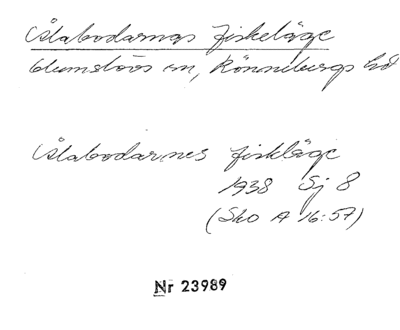 Ålabodarnas fiskeläge
Glumslövs sn, Rönnebergs hd
Ålabodarnes fiskläge
1938 Sj 8
(Sko A 16:57)
Nr 23989